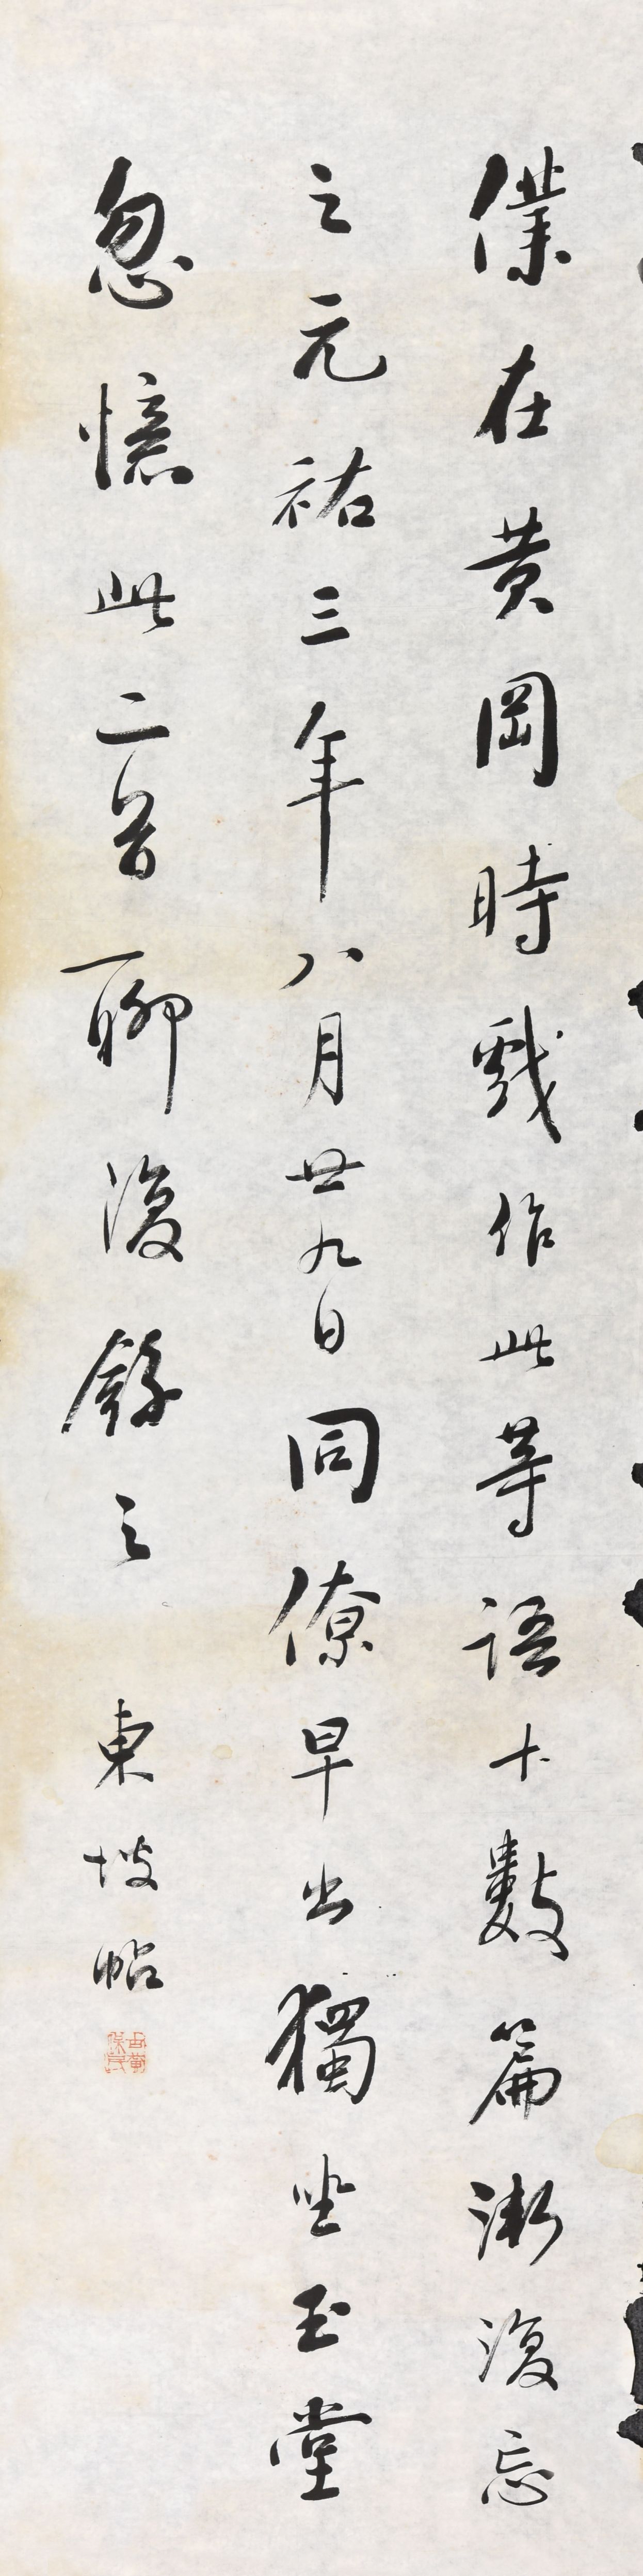 僕在黄岡時戲作此等語十數篇漸復忘
之元祐三年八月廿九日同僚早出獨坐玉堂
忽憶此二首聊復錄之 東坡帖